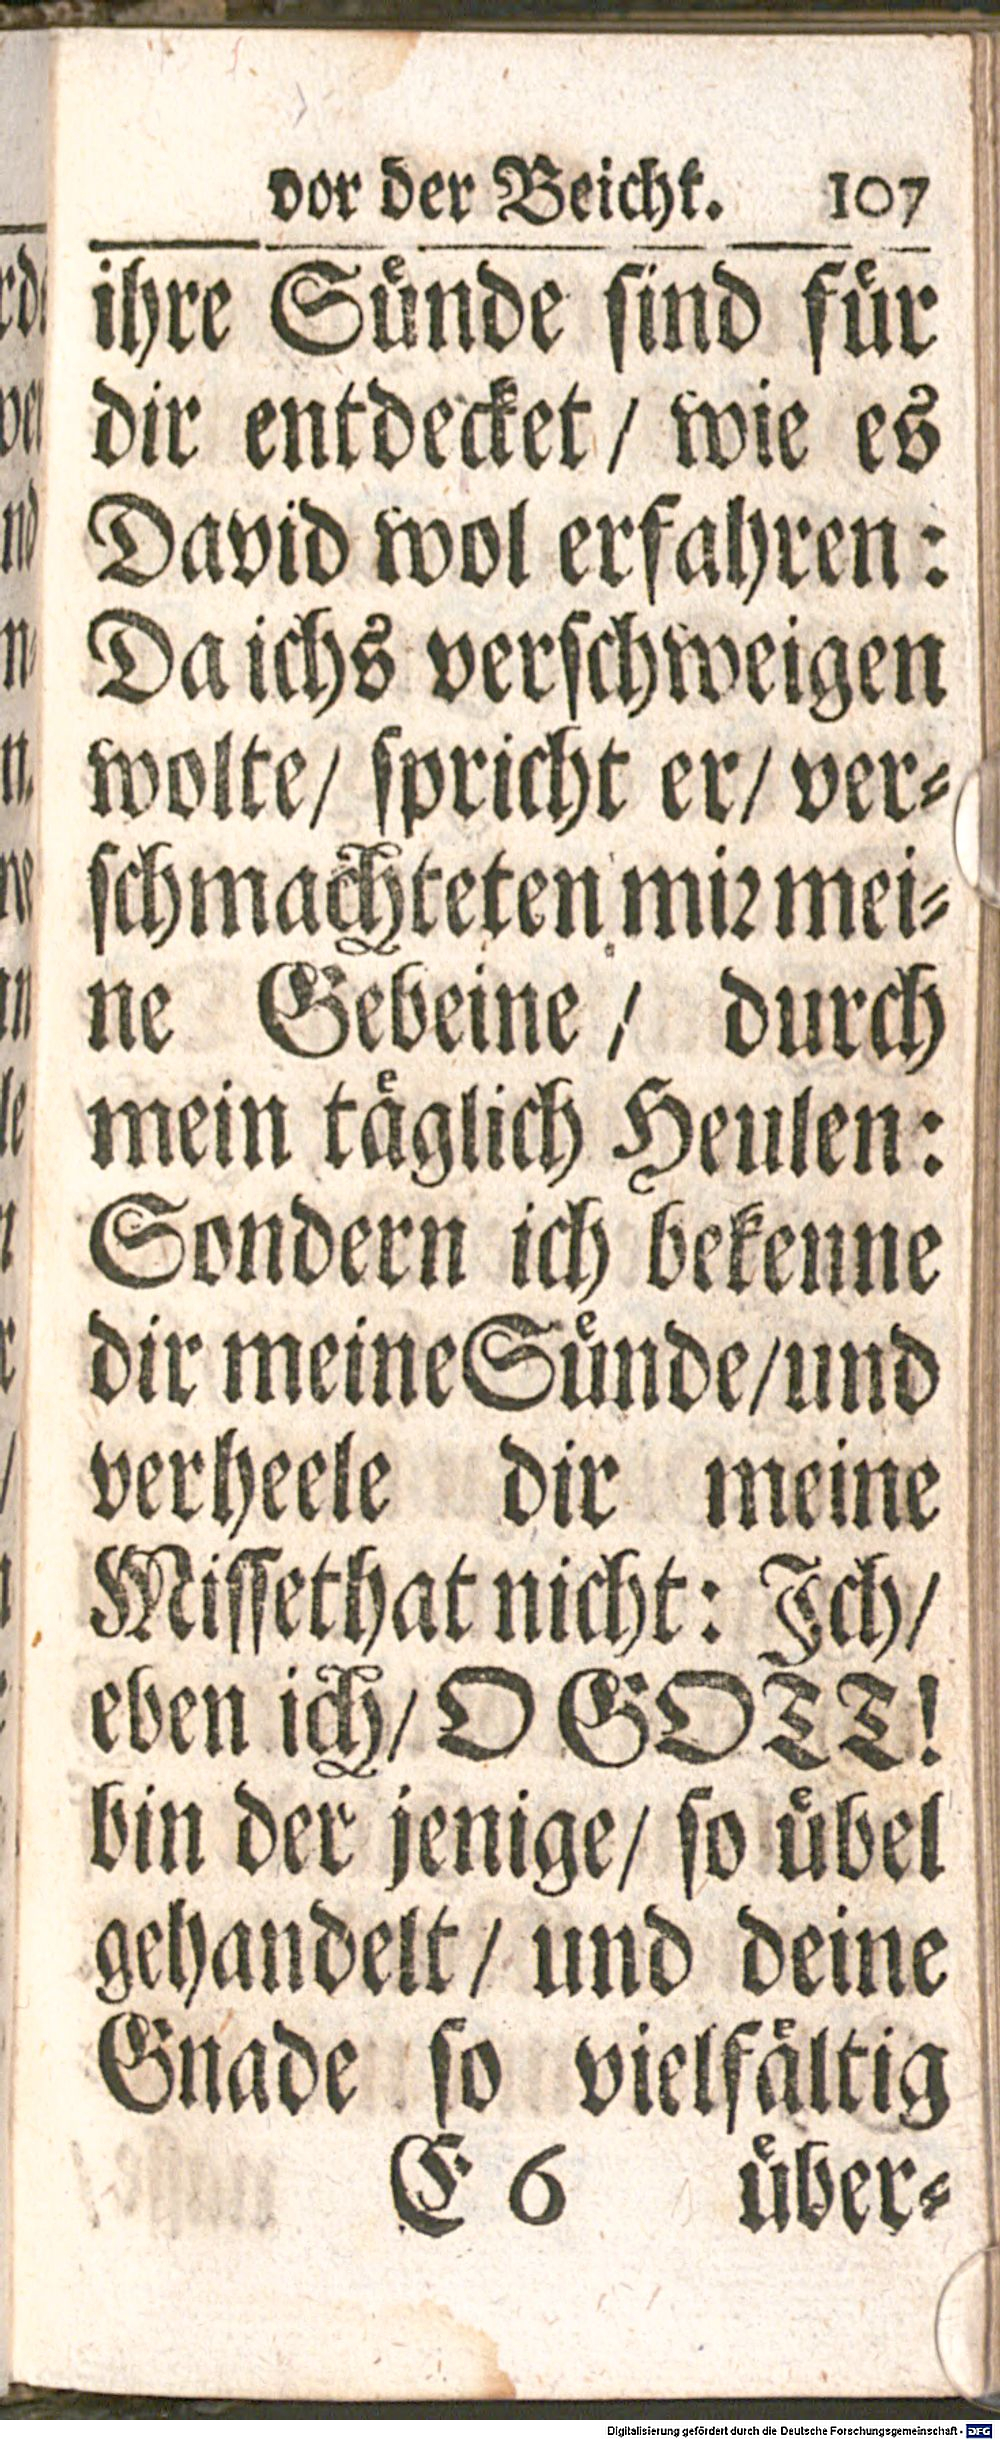 vor der Beicht. 107
ihre Sünde sind für
dir entdecket/ wie es
David wol erfahren:
Da ichs verschweigen
wolte/ spricht er/ ver-
schmachteten mir mei-
ne Gebeine/ durch
mein täglich Heulen:
Sondern ich bekenne
dir meine Sünde/und
verheele dir meine
Missethat nicht: Ich/
eben ich/ O GOTT!
bin der jenige/ so übel
gehandelt/ und deine
Gnade so vielfältig
E 6 über-
Digitalisierung gefördert durch die Deutsche Forschungsgemeinschaft - DFG